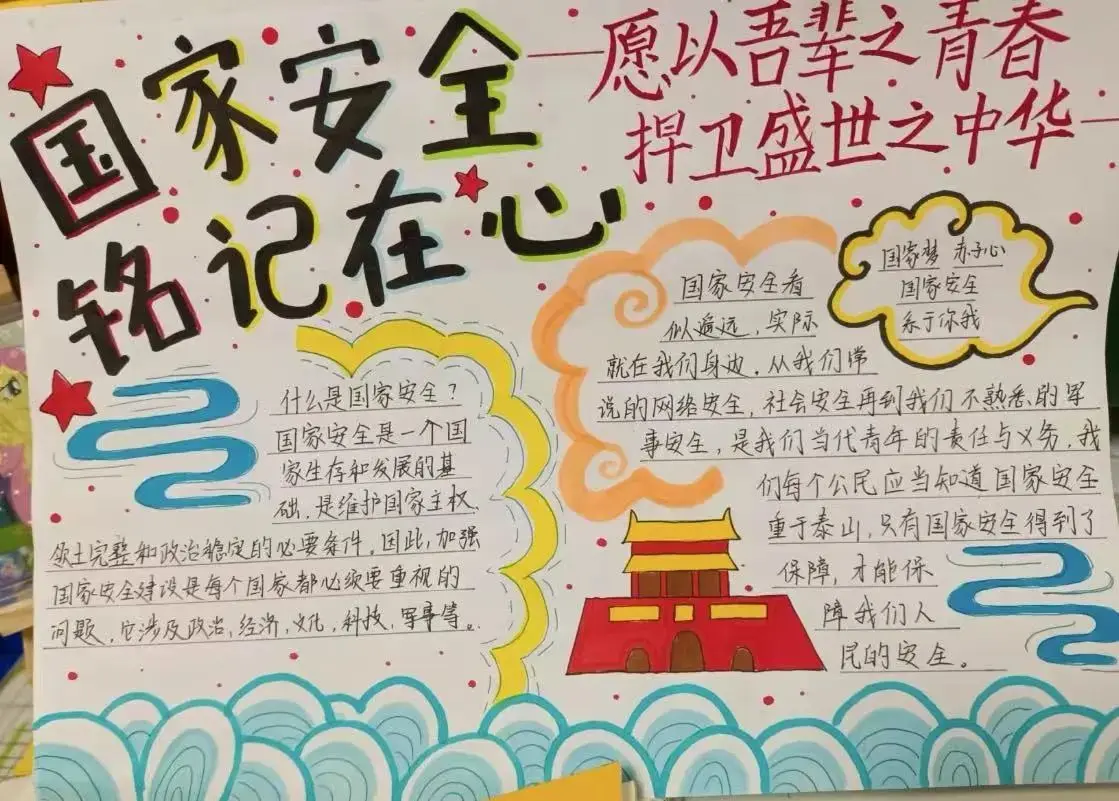 国家安全
铭记在心
愿以吾辈之青春
捍卫盛世之中华
什么是国家安全？
国家安全是一个国
家生存和发展的基
础，是维护国家主权、
领土完整和政治稳定的必要条件。因此，加强
国家安全建设是每个国家都必须要重视的
问题，它涉及政治，经济，文化，科技，军事等。
国家安全看
似遥远，实际
就在我们身边，从我们常
说的网络安全，社会安全再到我们不熟悉的军
事安全，是我们当代青年的责任与义务，我
们每个公民应当知道国家安全
重于泰山，只有国家安全得到了
保障，才能保
障我们人
民的安全。
国家梦 赤子心
国家安全
系于你我